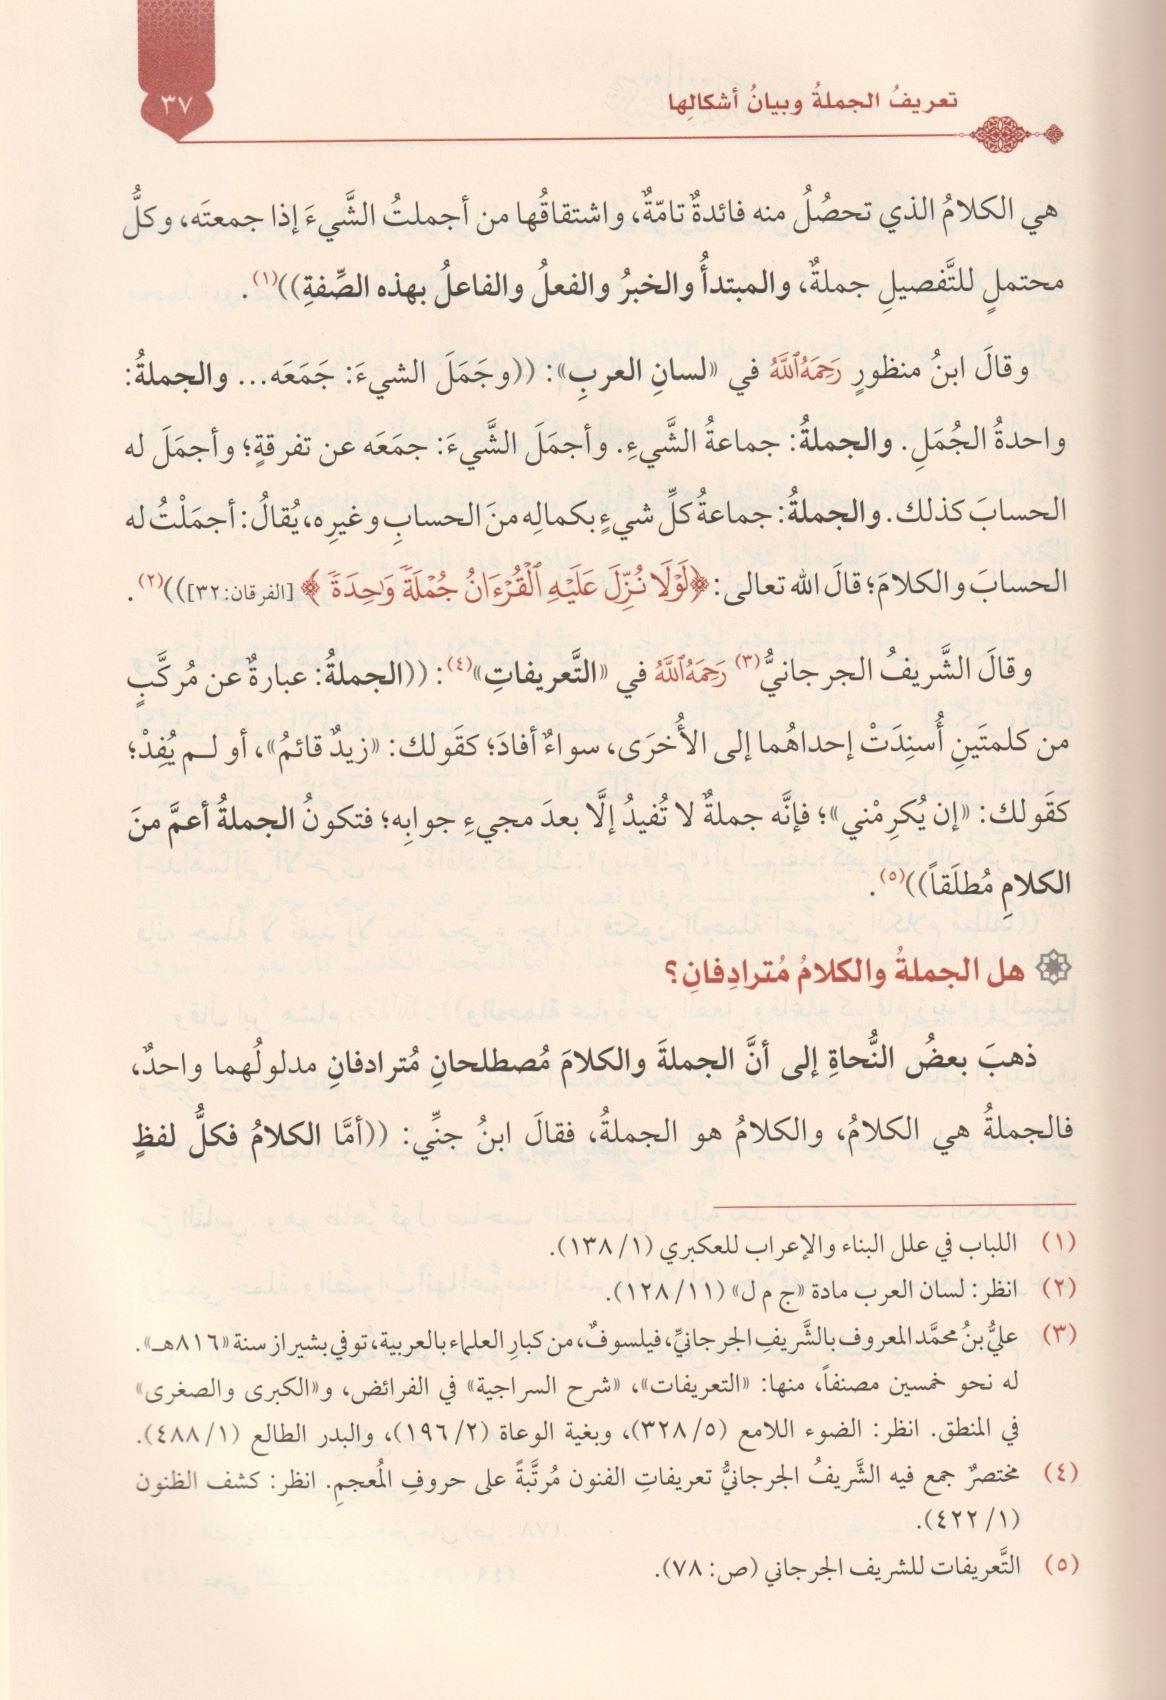 تعريفُ الجملةُ وبيانُ أشكالِها
٣٧
هي الكلامُ الذي تحصُلُ منه فائدةٌ تامّةٌ، واشتقاقُها من أجملتُ الشَّيءَ إذا جمعتَه، وكلُّ
محتملٍ للتَّفصيلِ جملةٌ، والمبتدأُ والخبرُ والفعلُ والفاعلُ بهذه الصِّفةِ))(١).
وقالَ ابنُ منظورٍ رَحِمَهُ ٱللَّهُ في «لسانِ العربِ»: ((وجَمَلَ الشيءَ: جَمَعَه... والجملةُ:
واحدةُ الجُمَلِ. والجملةُ: جماعةُ الشَّيءِ. وأجمَلَ الشَّيءَ: جمَعَه عن تفرقةٍ؛ وأجمَلَ له
الحسابَ كذلك. والجملةُ: جماعةُ كلِّ شيءٍ بكمالِه منَ الحسابِ وغيرِه، يُقالُ: أجمَلْتُ له
الحسابَ والكلامَ؛ قالَ الله تعالى: ﴿لَوْلَا نُزِّلَ عَلَيْهِ ٱلْقُرْءَانُ جُمْلَةً وَٰحِدَةً﴾ [الفرقان: ٣٢]))(٢).
وقالَ الشَّريفُ الجرجانيُّ(٣) رَحِمَهُ ٱللَّهُ في «التَّعريفاتِ»(٤): ((الجملةُ: عبارةٌ عن مُركَّبٍ
من كلمتَينِ أُسنِدَتْ إحداهُما إلى الأُخرَى، سواءٌ أفادَ؛ كقَولك: «زيدٌ قائمُ»، أو لـم يُفِدْ؛
كقَولك: «إن يُكرِمْني»؛ فإنَّه جملةٌ لا تُفيدُ إلَّا بعدَ مجيءِ جوابِه؛ فتكونُ الجملةُ أعمَّ منَ
الكلامِ مُطلَقاً))(٥).
هل الجملةُ والكلامُ مُترادِفانِ؟
ذهبَ بعضُ النُّحاةِ إلى أنَّ الجملةَ والكلامَ مُصطلحانِ مُترادفانِ مدلولُهما واحدٌ،
فالجملةُ هي الكلامُ، والكلامُ هو الجملةُ، فقالَ ابنُ جنِّي: ((أمَّا الكلامُ فكلُّ لفظٍ
(١) اللباب في علل البناء والإعراب للعكبري (١٣٨/١).
(٢) انظر: لسان العرب مادة «ج م ل» (١٢٨/١١).
(٣) عليُّ بنُ محمَّد المعروف بالشَّريفِ الجرجانيِّ، فيلسوفٌ، من كبارِ العلماء بالعربية، توفي بشيراز سنة «٨١٦هـ».
له نحو خمسين مصنفاً، منها: «التعريفات»، «شرح السراجية» في الفرائض، و«الكبرى والصغرى»
في المنطق. انظر: الضوء اللامع (٣٢٨/٥)، وبغية الوعاة (١٩٦/٢)، والبدر الطالع (٤٨٨/١).
(٤) مختصرٌ جمع فيه الشَّريفُ الجرجانيُّ تعريفاتِ الفنون مُرتَّبةً على حروفِ المُعجمِ. انظر: كشف الظنون
(٤٢٢/١).
(٥) التَّعريفات للشريف الجرجاني (ص: ٧٨).